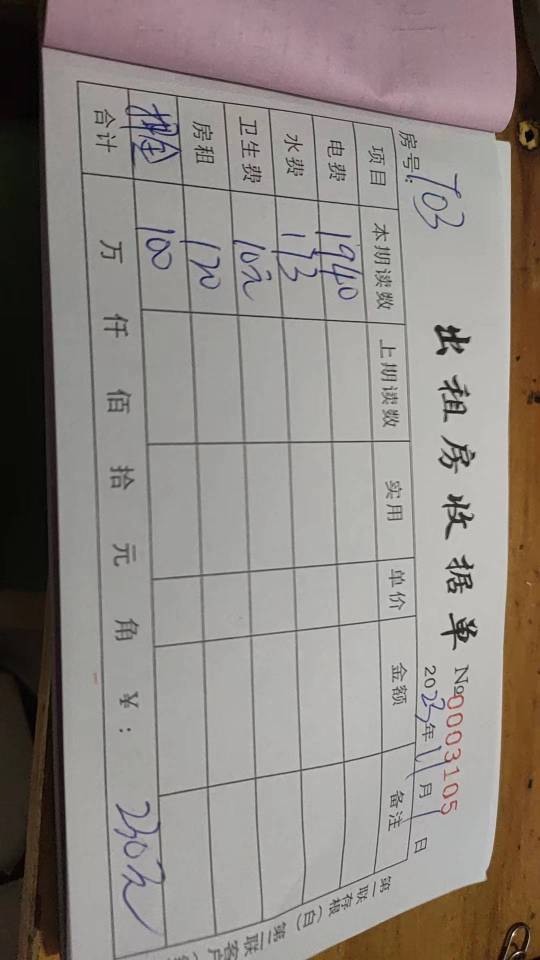 出租房收据单
№0003105
房号:703
2023年11月1日
项目 本期读数 上期读数 实用 单价 金额 备注
电费 1940
水费 173
卫生费 10元
房租 120
押金 100
合计 万 仟 佰 拾 元 角 ¥: 230元
第一联 存根(白) 第二联 客户